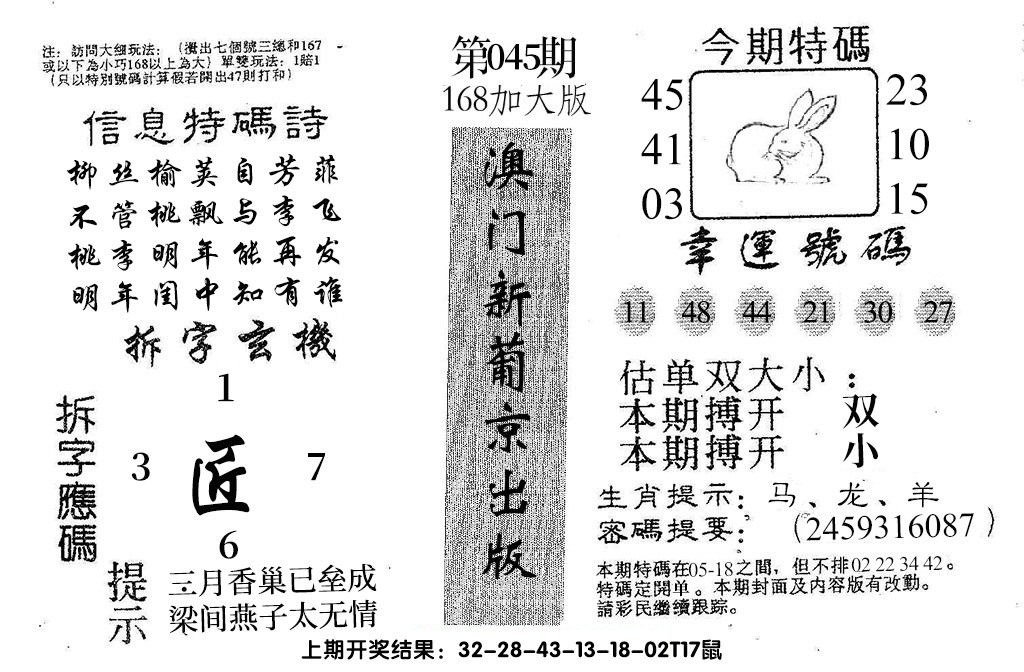 注：訪問大细玩法：（攪出七個號三總和167
或以下為小巧168以上為大）單雙玩法：1賠1
（只以特別號碼計算假若開出47則打和）
信息特碼詩
柳丝榆英自芳菲
不管桃飘与李飞
桃李明年能再发
明年闺中知有谁
拆字玄機
拆字應碼
1
3 匠 7
6
提示
三月香巢已垒成
梁间燕子太无情
第045期
168加大版
澳门新葡京出版
今期特碼
45 23
41 10
03 15
幸運號碼
11 48 44 21 30 27
估单双大小：
本期搏开 双
本期搏开 小
生肖提示：马、龙、羊
密碼提要：（2459316087）
本期特碼在05-18之間，但不排02 22 34 42。
特碼定開单。本期封面及内容版有改動。
請彩民繼續跟踪。
上期开奖结果：32-28-43-13-18-02T17鼠